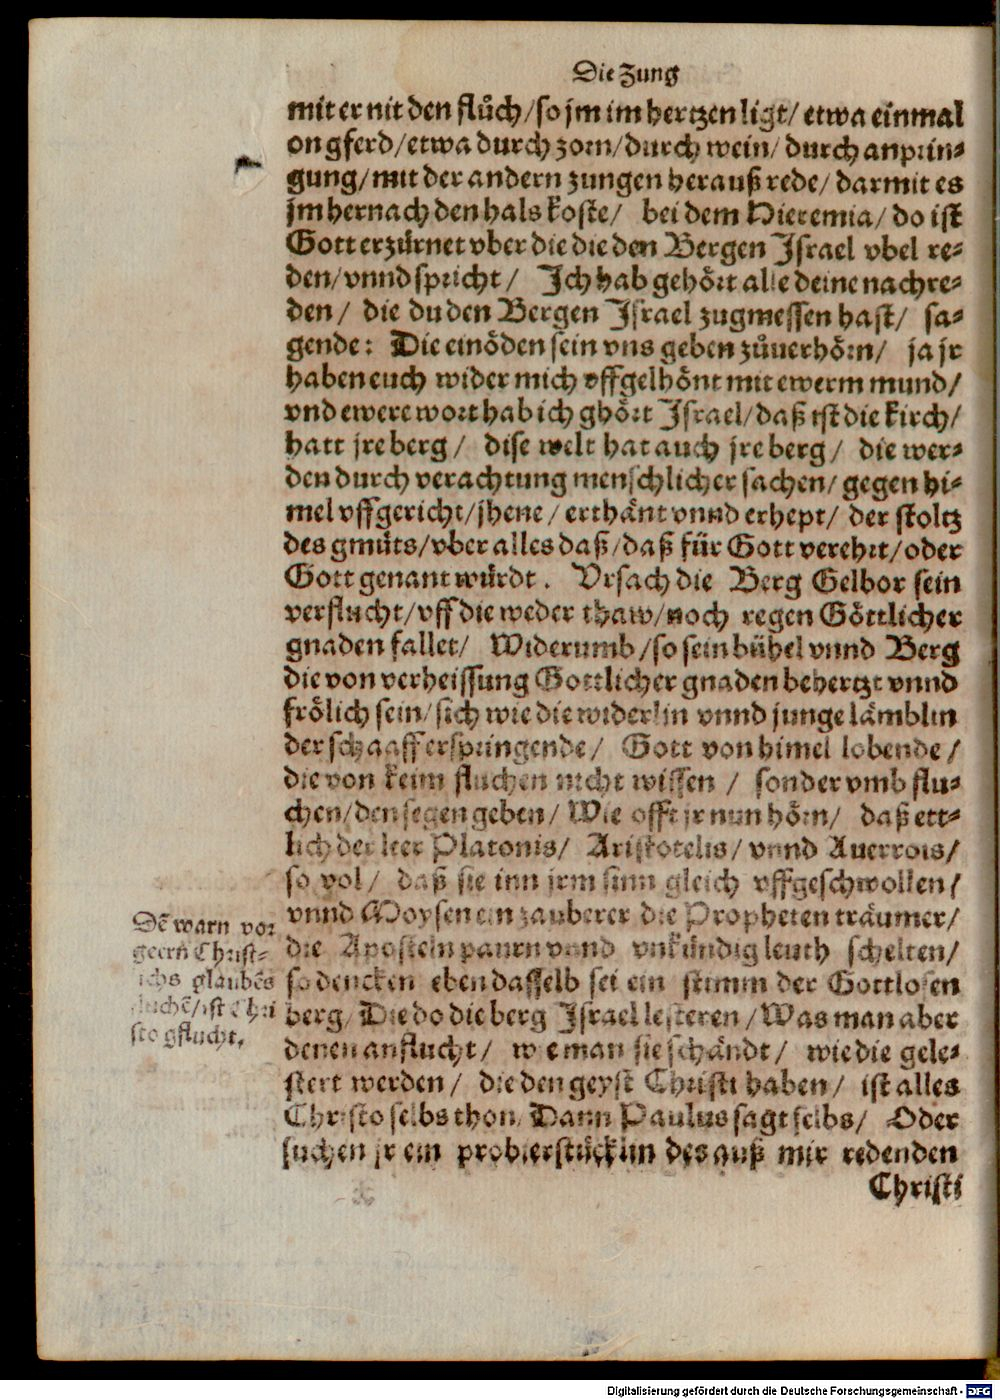 Die Zung
mit er nit den flůch/so jm im hertzen ligt/ etwa einmal
on gferd/etwa durch zorn/durch wein/ durch anprin⸗
gung/mit der andern zungen herauß rede/ darmit es
jm hernach den hals koste/ bei dem Hieremia/ do ist
Gott erzürnet vber die die den Bergen Israel vbel re⸗
den/vnnd spricht/ Ich hab gehört alle deine nachre⸗
den/ die du den Bergen Israel zugmessen hast/ sa⸗
gende: Die einöden sein vns geben zůuerhörn/ ja jr
haben euch wider mich vffgelhönt mit ewerm mund/
vnd ewere wort hab ich ghört Israel/daß ist die kirch/
hatt jre berg/ dise welt hat auch jre berg/ die wer⸗
den durch verachtung menschlicher sachen/ gegen hi⸗
mel vffgericht/jhene/ erthänt vnnd erhept/ der stoltz
des gmüts/vber alles daß/daß für Gott verehrt/oder
Gott genant würdt. Vrsach die Berg Gelbor sein
verflucht/vff die weder thaw/noch regen Göttlicher
gnaden fallet/ Widerumb/so sein bühel vnnd Berg
die von verheissung Gottlicher gnaden behertzt vnnd
frölich sein/sich wie die widerlin vnnd junge lämblin
der schaaff erspringende/ Gott von himel lobende/
die von keim fluchen nicht wissen/ sonder vmb flu⸗
chen/den segen geben/ Wie offt jr nun hörn/ daß ett⸗
lich der leer Platonis/ Aristotelis/ vnnd Auerrois/
so vol/ daß sie inn jrm sinn gleich vffgeschwollen/
vnnd Moysen ein zauberer die Propheten träumer/
die Aposteln paurn vnnd vnkündig leuth schelten/
so dencken eben dasselb sei ein stimm der Gottlosen
berg/ Die do die berg Israel lesteren/Was man aber
denen anflucht/ wie man sie schändt/ wie die gele⸗
stert werden/ die den geyst Christi haben/ ist alles
Christo selbs thon/ Dann Paulus sagt selbs/ Oder
suchen jr ein probierstücklin des auß mir redenden
Christi
Dē warn vor
geern Christ⸗
ichs glaubēs
fluchē/ist Chri
sto gflucht.
Digitalisierung gefördert durch die Deutsche Forschungsgemeinschaft - DFG